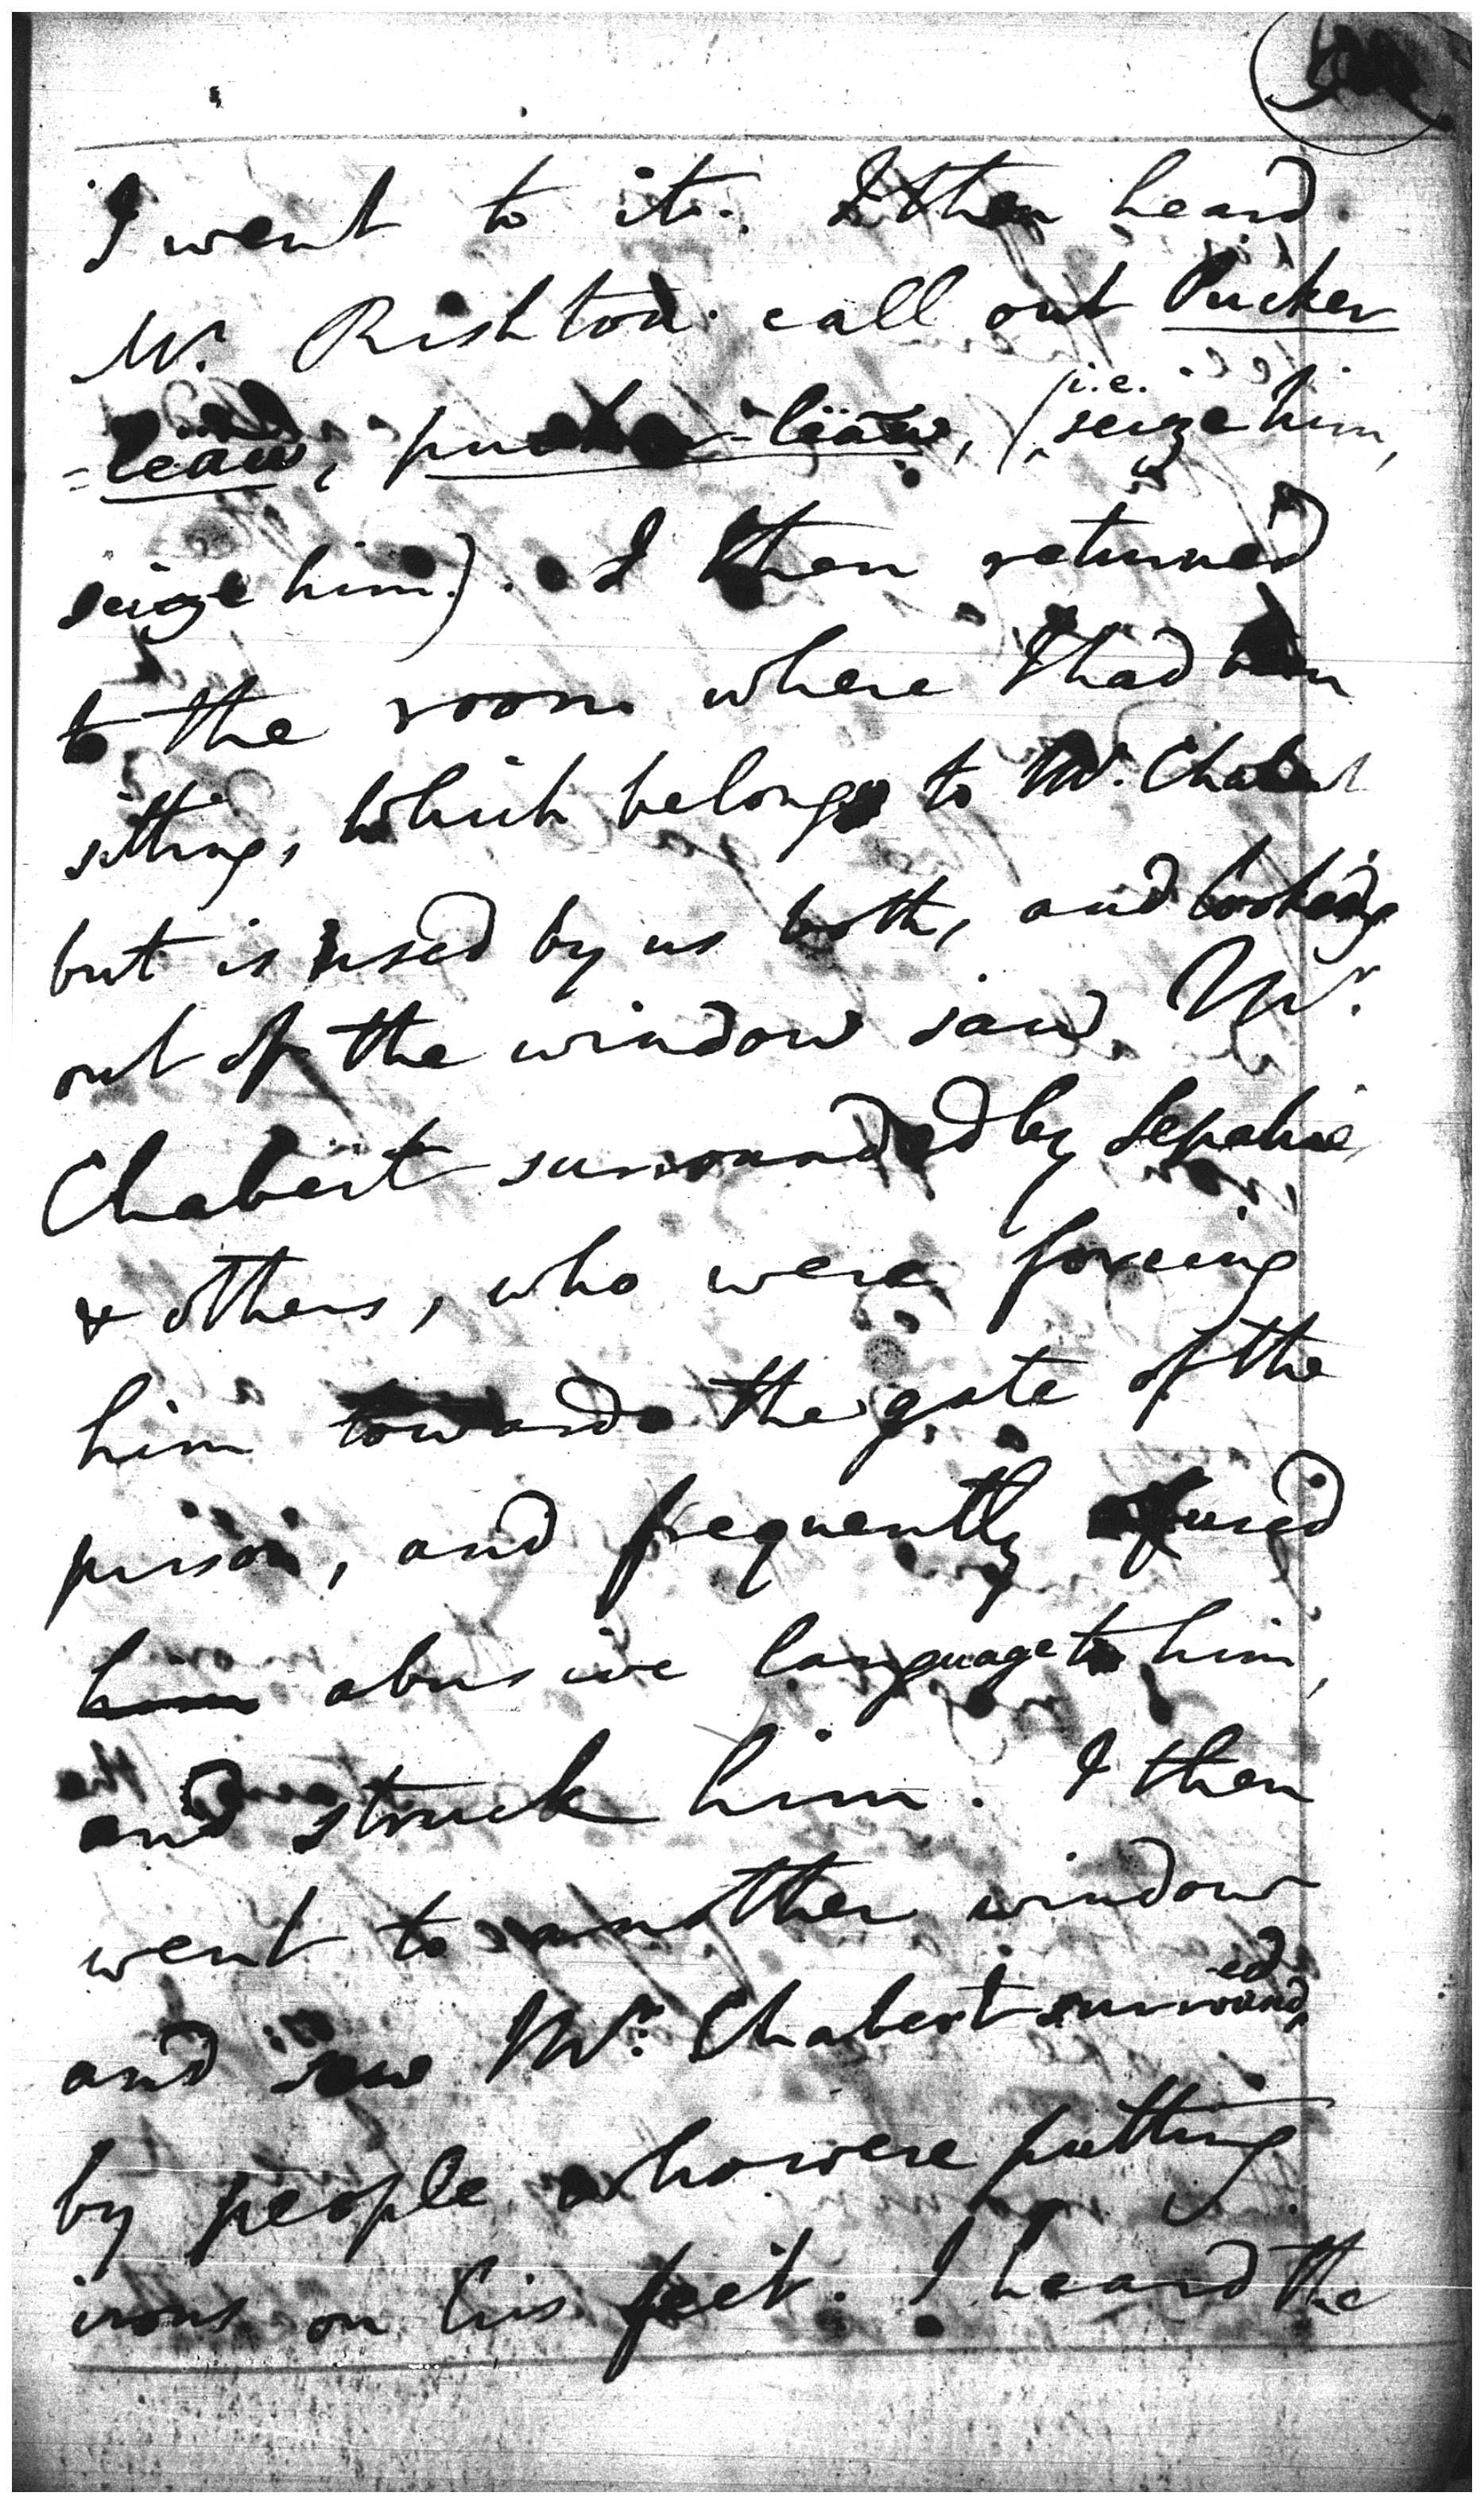 I went to it. I then heard
Mr. Rishton call out Pucker
=leäw, pucker-leäw, (i.e. seize him,
seize him.). I then returned
to the room where I had been
sitting, which belongs to Mr. Chabert
but is used by us both, and looking
out of the window saw Mr.
Chabert surrounded by Sepahie,
& others, who were forcing
him towards the gate of the
prison, and frequently used
him abusive language to him,
and struck him. I then
went to another window
and saw Mr. Chabert surrounded
by people who were putting
irons on his feet. I heard the